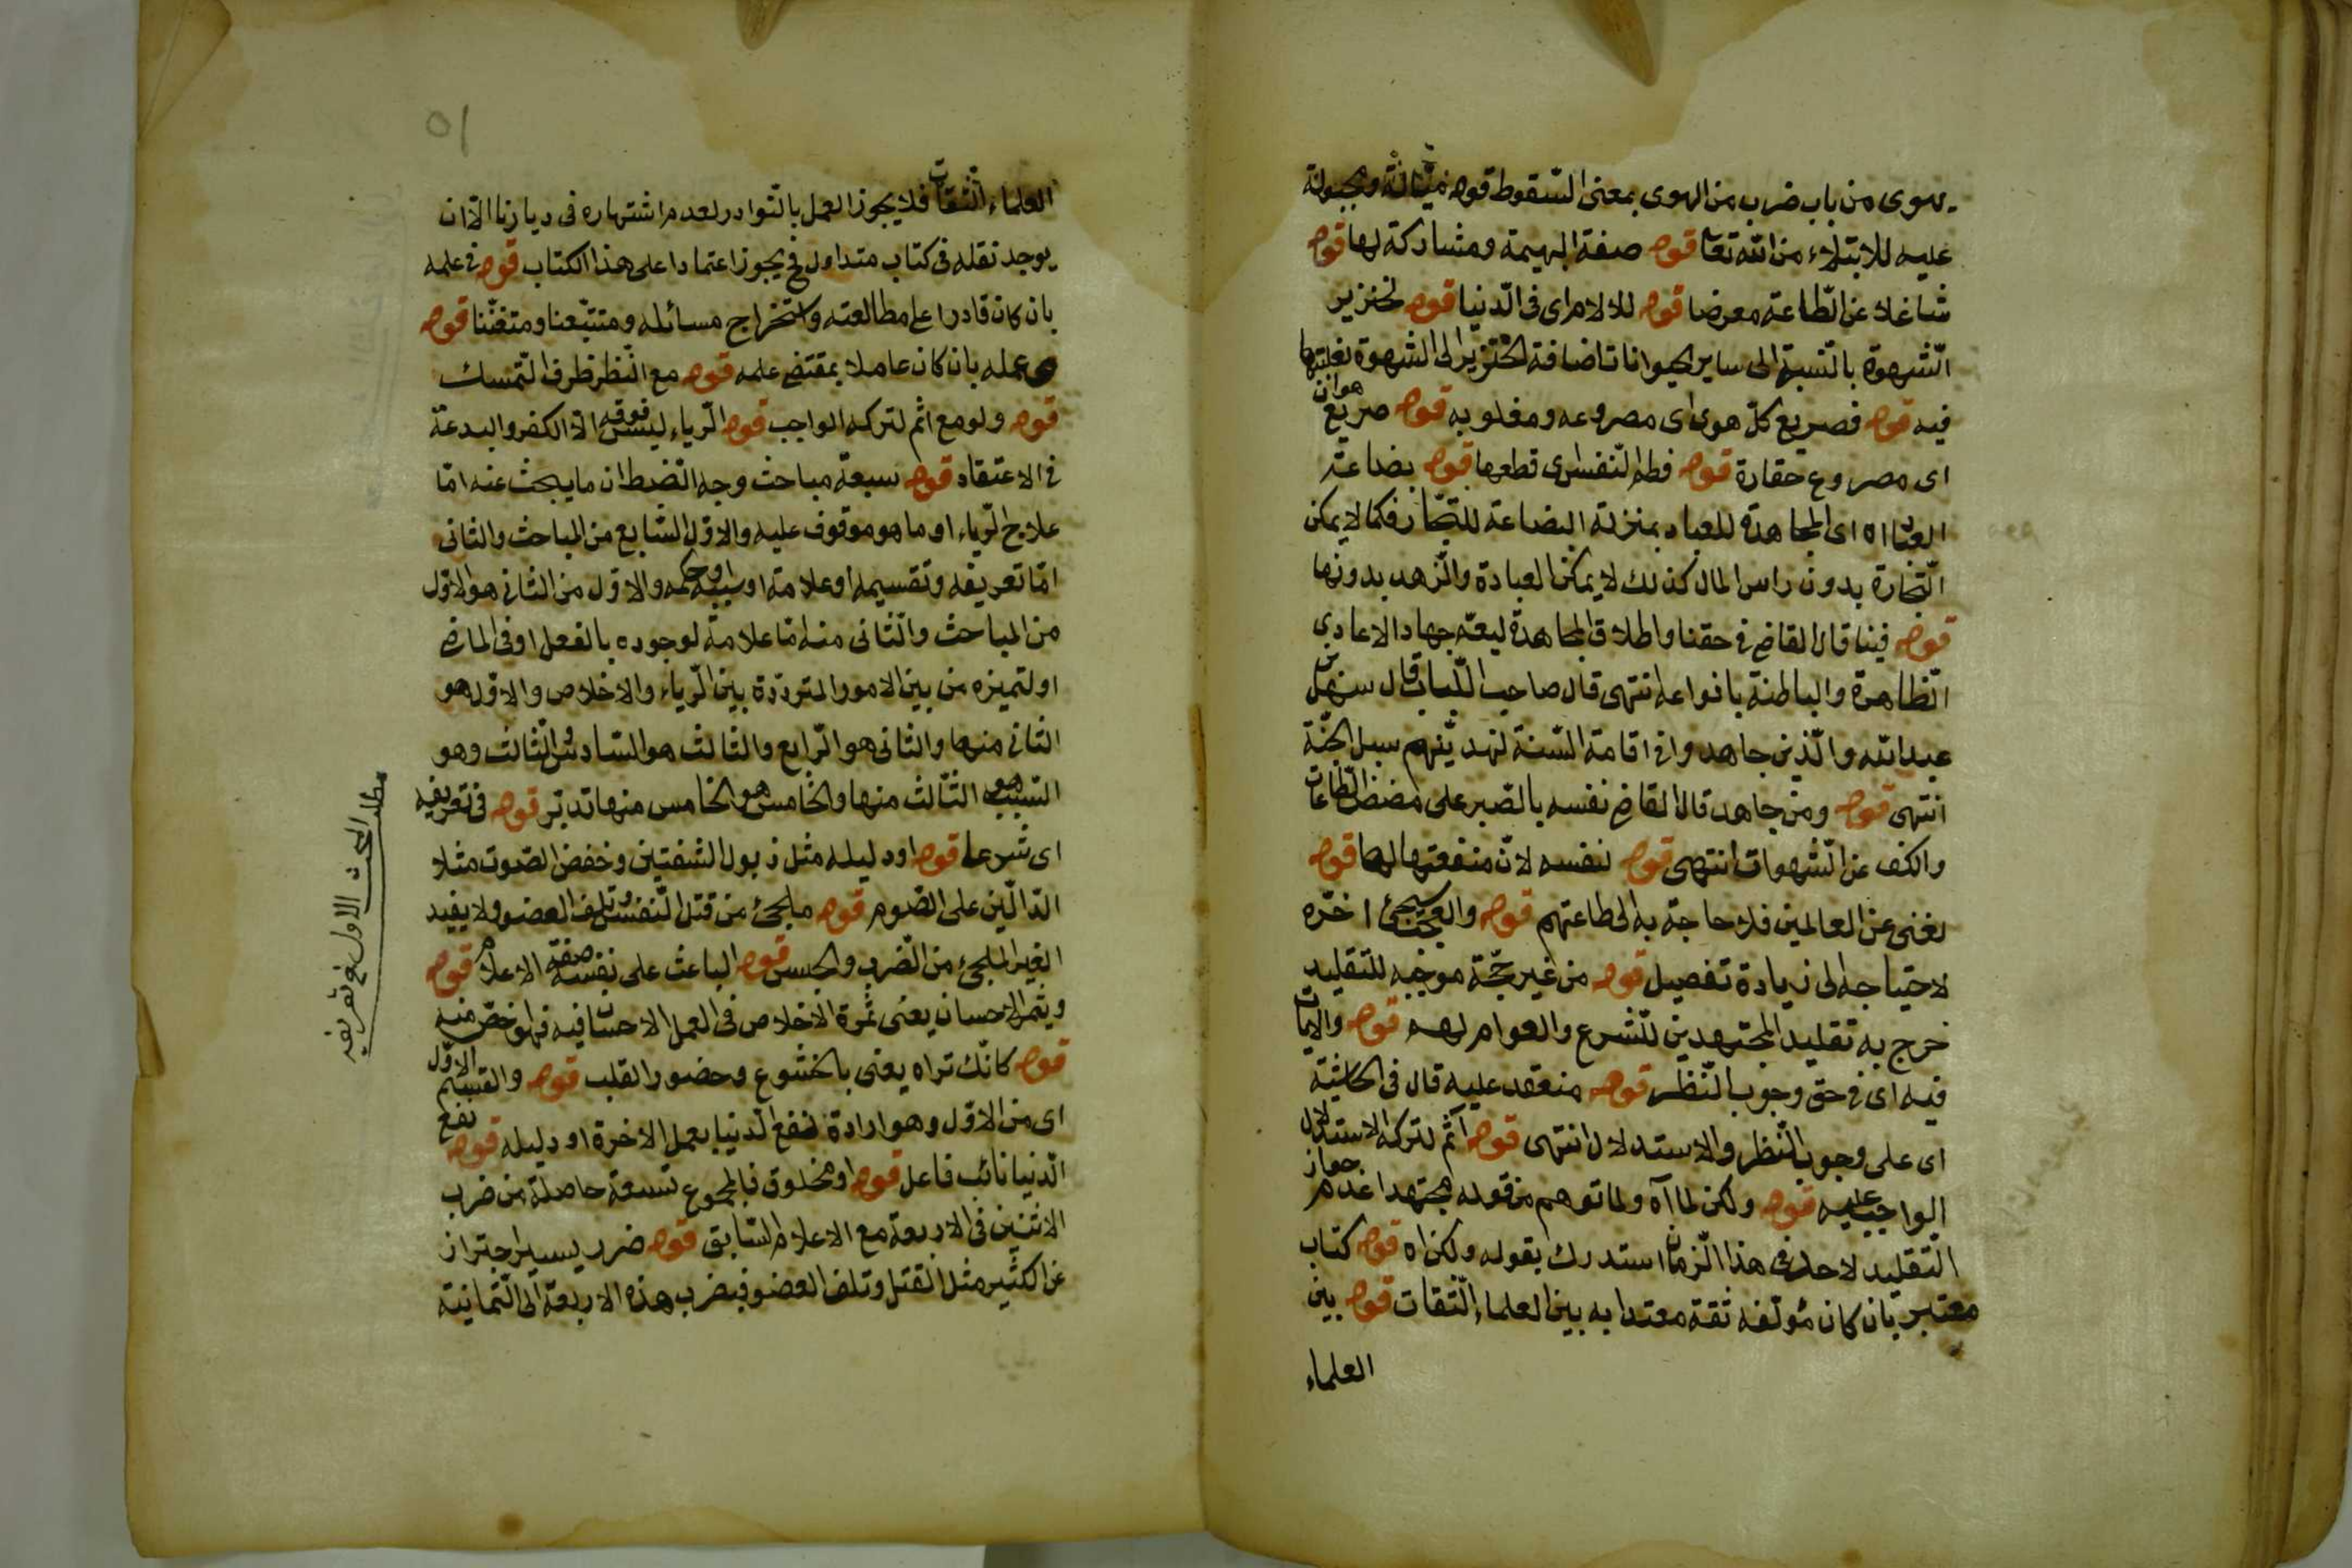 يهوى من باب ضرب من الهوى بمعنى السقوط قوله ومجبولة
عليه للابتلاء من الله تعا قوله صفة البهيمة ومشاركة لها قوله
شاغلا عن الطاعة معرضا قوله للالام اى فى الدنيا قوله لخنزير
الشهوة بالنسبة الى ساير الحيوانات اضافة الخنزير الى الشهوة لغلبتها
فيه قوله فصريع كل هوى اى مصروعه ومغلوبه قوله صريع هوان
اى مصروع حقارة قوله فطم النفس اى قطعها قوله بضاعة
العباد اه اى المجاهدة للعباد بمنزلة البضاعة للتجار فكما لا يمكن
التجارة بدون راس المال كذلك لا يمكن العبادة والزهد بدونها
قوله فينا قال القاضى فى حقنا واطلاق المجاهدة ليعم جهاد الاعادى
الظاهرة والباطنة بانواعه انتهى قال صاحب اللباب قال سهل بن
عبد الله والذين جاهدوا فى اقامة السنة لنهدينهم سبل الجنة
انتهى قوله ومن جاهد قال القاضى نفسه بالصبر على مضض الطاعات
والكف عن الشهوات انتهى قوله لنفسه لان منفعتها لها قوله
لغنى عن العالمين فلا حاجة به الى طاعتهم قوله والعجب سيجئ اخره
لاحتياجه الى زيادة تفصيل قوله من غير حجة موجبه للتقليد
خرج به تقليد المجتهدين للشرع والعوام لهم قوله والايات
فيه اى فى حق وجوب النظر قوله منعقد عليه قال فى الحاشية
اى على وجوب النظر والاستدلال انتهى قوله آثم لتركه الاستدلال
الواجب عليه قوله ولكن لما آه ولما توهم من قوله مجتهدا عدم جواز
التقليد لاحد فى هذا الزمان استدرك بقوله ولكن اه قوله كتاب
معتبر بان كان مؤلفه ثقة معتدا به بين العلماء الثقات قوله بين
العلماء
٥١
العلماء الثقات فلا يجوز العمل بالنوادر لعدم اشتهاره فى ديارنا الا ان
يوجد نقله فى كتاب متداول فح يجوز اعتمادا على هذا الكتاب قوله فى علمه
بان كان قادرا على مطالعته واستخراج مسائله ومتتبعنا ومتفننا قوله
وعمله بان كان عاملا بمقتضى علمه قوله مع النظر ظرف التمسك
قوله ولو مع اثم لتركه الواجب قوله الرياء ليس فوقه الا الكفر والبدعة
فى الاعتقاد قوله سبعة مباحث وجه الضبط ان ما يبحث عنه اما
علاج الرياء او ما هو موقوف عليه والاول السابع من المباحث والثانى
اما تعريفه وتقسيمه او علامته او سببه او حكمه والاول من الثانى هو الاول
من المباحث والثانى منه اما علامة لوجوده بالفعل او فى الماضى
او لتميزه من بين الامور المترددة بين الرياء والاخلاص والاول هو
الثانى منها والثانى هو الرابع والثالث هو السادس والثالث وهو
السبب هو الثالث منها والخامس هو الخامس منها تدبر قوله فى تعريفه
اى شرعا قوله او دليله مثل ذبول الشفتين وخفض الصوت مثلا
الدالين على الصوم قوله ملجئ من قتل النفس وتلف العضو ولا يفيد
الغير الملجئ من الضرب والحبس قوله الباعث على نفسه صفة الاعلام قوله
ويثمر الاحسان يعنى ثمرة الاخلاص فى العمل الاحسان فيه فهو اخص منه
قوله كانك تراه يعنى بالخشوع وحضور القلب قوله والقسم الاول
اى من الاول وهو ارادة نفع الدنيا بعمل الاخرة او دليله قوله نفع
الدنيا نائب فاعل قوله او مخلوق فالمجموع تسعة حاصلة من ضرب
الاثنين فى الاربعة مع الاعلام السابق قوله ضرر يسير احتراز
عن الكثير مثل القتل وتلف العضو فبضرب هذه الاربعة الى الثمانية
مطلب المبحث الاول فى تعريفه